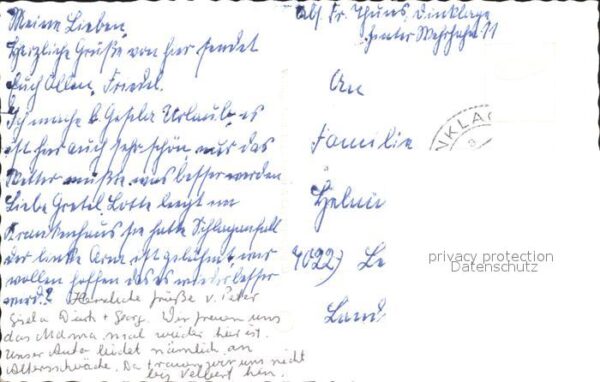 Meine Lieben,
Herzliche Grüße von hier sendet
Euch Allen, Friedel.
Ich mache b. Gisela Urlaub, es
ist hier auch sehr schön, nur das
Wetter müßte was besser werden
Liebe Gretel, Lotte liegt im
Krankenhaus sie hatte Schlaganfall
der linke Arm ist gelähmt, wir
wollen hoffen das es wieder besser
wird.
Herzliche Grüße v. Peter
Gisela Dierk + Georg. Wir freuen uns
das Mama mal wieder hier ist.
Unser Auto leidet nämlich an
Altersschwäche. Da trauen wir uns nicht
bis Velbert hin.
Abs. Fr. Thüns, Dinklage
Hinter Wehrhahn 11
An
Familie
4022) Le
Land
NKLAG
privacy protection
Datenschutz